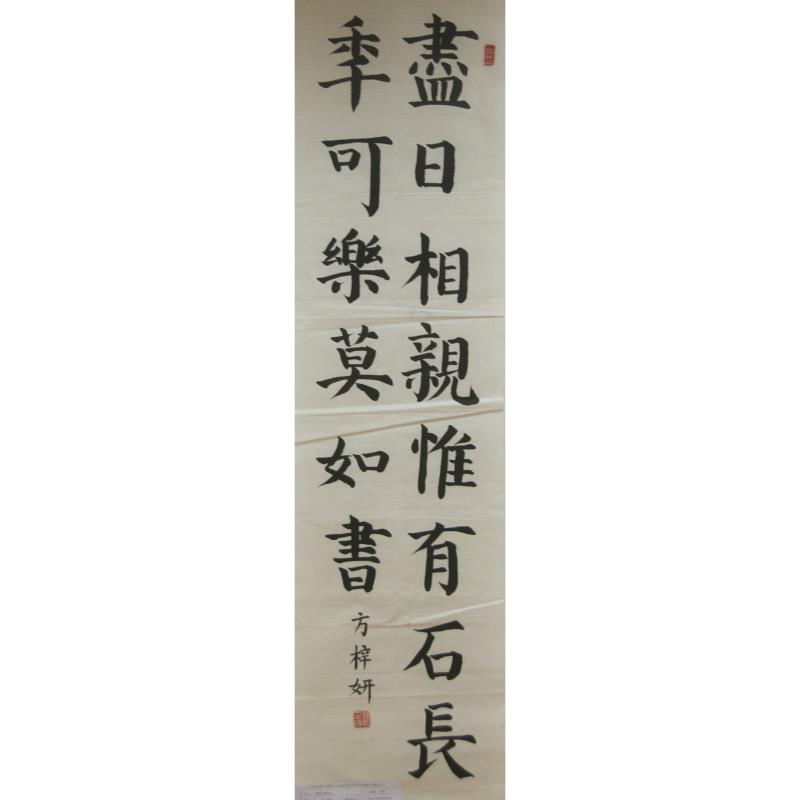 盡日相親惟有石長
秊可樂莫如書
方梓妍